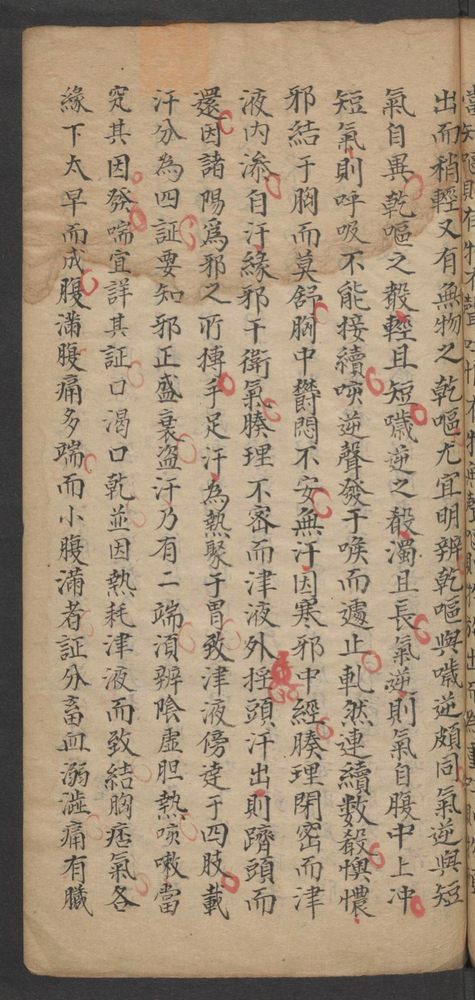 出而稍輕又有無物之乾嘔尤宜明辨乾嘔與噦逆頗同氣逆與短
氣自異乾嘔之殽輕且短噦逆之殽濁且長氣逆則氣自腹中上冲
短氣則呼吸不能接續咳逆聲發于喉而遽止軋然連續數殽懊憹
邪結于胸而莫舒胸中鬱悶不安無汗因寒邪中經腠理閉密而津
液內滲自汗緣邪干衛氣腠理不密而津液外揺頭汗出則躋頭而
還因諸陽為邪之所摶手足汗為熱聚于胃致津液傍達于四肢載
汗分為四証要知邪正盛衰盗汗乃有二端湏辨陰虛胆熱咳嗽當
究其因發喘宜詳其証口渴口乾並因熱耗津液而致結胸痞氣各
緣下太早而成腹滿腹痛多端而小腹滿者証分畜血溺澁痛有臟